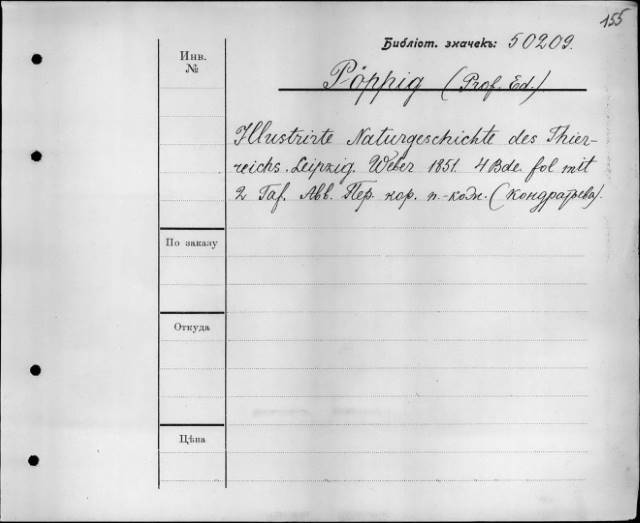 155
Библіот. значекъ: 50209.
Инв.
№
Pöppig (Prof. Ed.)
Illustrirte Naturgeschichte des Thier-
reichs. Leipzig. Weber 1851. 4 Bde. fol mit
2 Taf. Abb. Пер. кор. п.-кож. (Кондратьева).
По заказу
Откуда
Цѣна